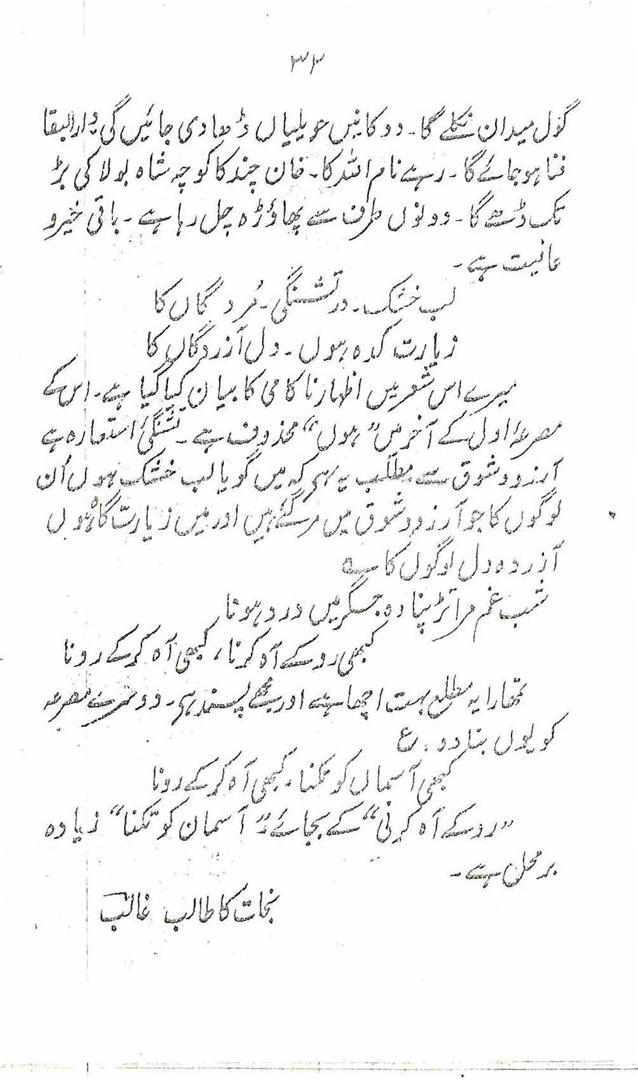 ۳۳
گول میدان نکلے گا۔ دوکانیں حویلیاں ڈھادی جائیں گی دارالبقا
فنا ہو جائے گا۔ رہے نام اللہ کا۔ خان چند کا کوچہ شاہ بولا کی بڑ
تک ڈھے گا۔ دونوں طرف سے پھاؤڑہ چل رہا ہے۔ باقی خیر و
عافیت ہے۔
لب خشک۔ در تشنگی۔ مُرد گاں کا
زیارت کدہ ہوں۔ دل آزردگاں کا
میرے اس شعر میں اظہار ناکامی کا بیان کیا گیا ہے۔ اس کے
مصرعۂ اول کے آخر میں "ہوں" محذوف ہے۔ تشنگی استعارہ ہے
آرزو و شوق سے مطلب یہ ہی کہ میں گویا لب خشک ہوں اُن
لوگوں کا جو آرزو و شوق میں مر گئے ہیں اور میں زیارت گاہ ہوں
آزردہ دل لوگوں کا ؎
شب غم مرا تڑپنا وہ جگر میں درد ہونا
کبھی رو کے آہ کرنا، کبھی آہ کر کے رونا
تمھارا یہ مطلع بہت اچھا ہے اور مجھے پسند ہی۔ دوسرے مصرعہ
کو یوں بنا دو۔ ع
کبھی آسماں کو تکنا، کبھی آہ کر کے رونا
"رو کے آہ کرنی" کے بجائے "آسمان کو تکنا" زیادہ
بر محل ہے۔
نجات کا طالب غالب